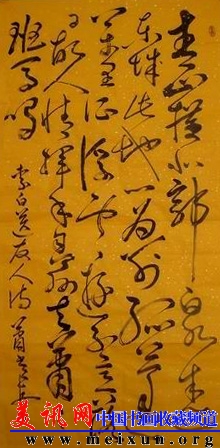 青山横北郭白水绕
东城此地一为别孤蓬
万里征浮云游子意落
日故人情挥手自兹去萧萧
班马鸣
李白送友人诗
美讯网
中国书画收藏频道
www.meixun.org